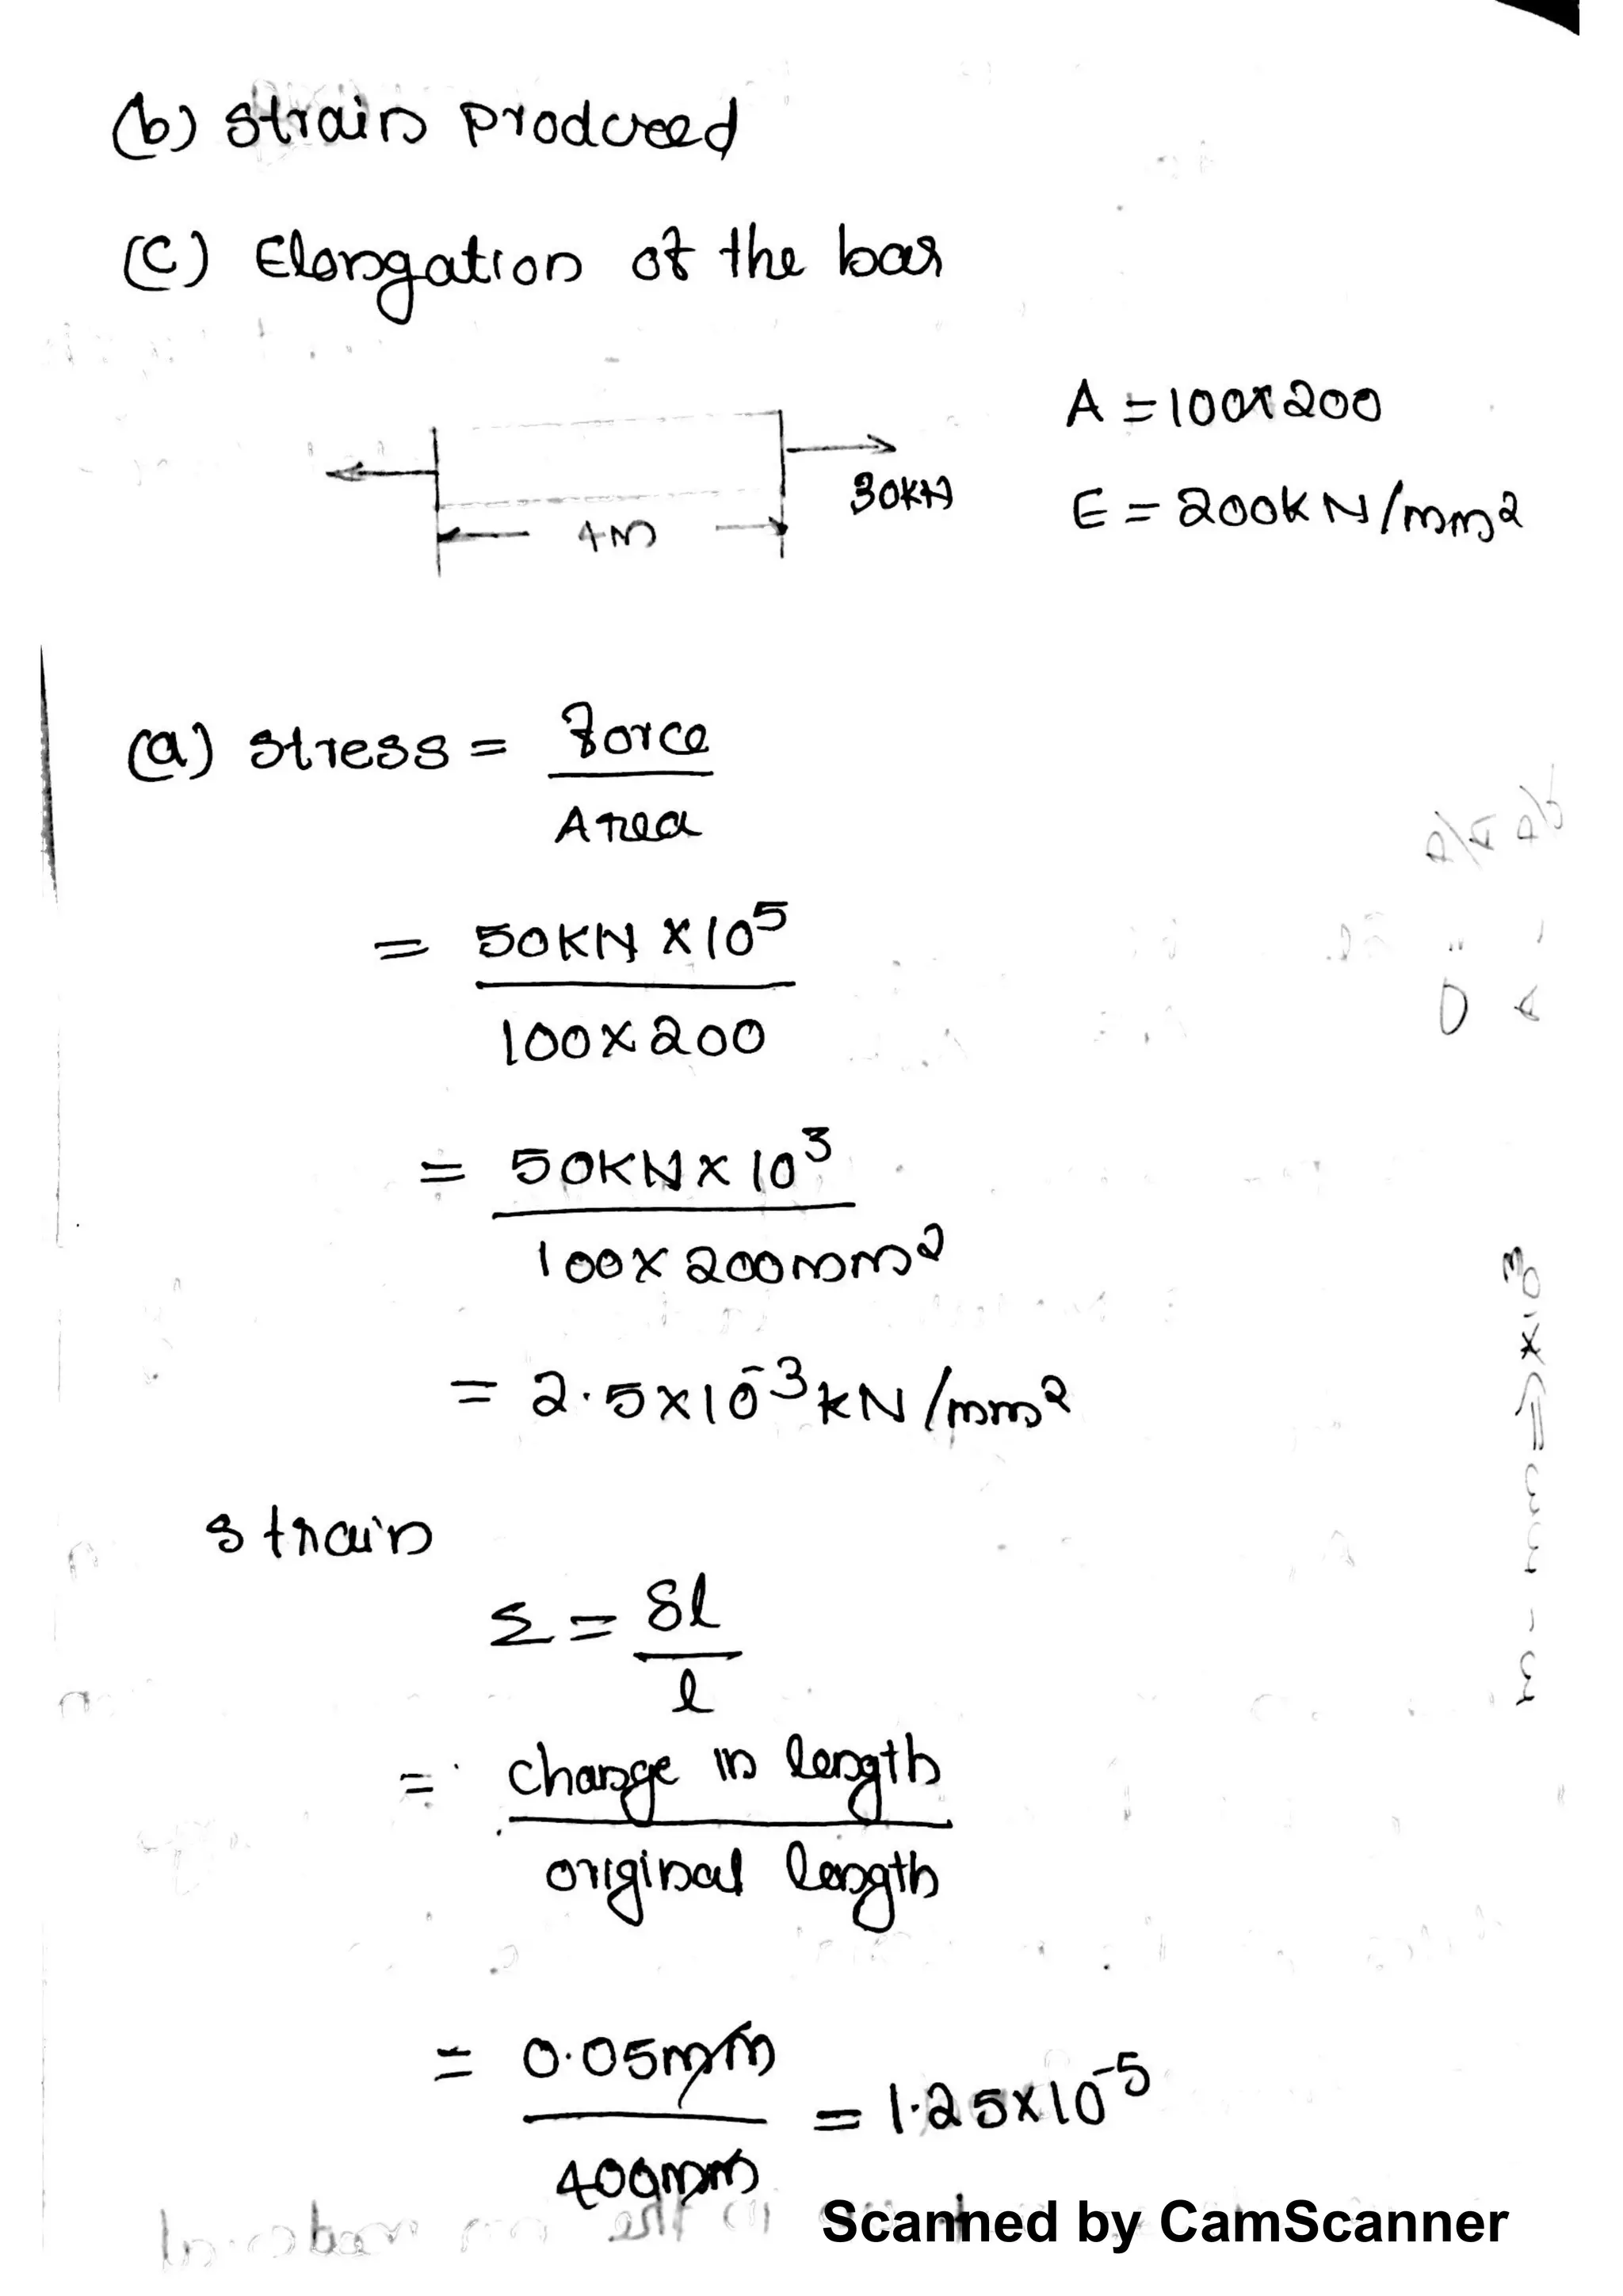 (b) strain produced
(c) Elongation of the bar
A = 100x200
30KN
E = 200KN/mm2
4m
(a) stress = force
Area
= 50KN x 10^5
100x200
= 50KN x 10^3
100x200mm^2
= 2.5x10^-3 kN/mm^2
strain
Σ = δl
l
= change in length
original length
= 0.05mm = 1.25x10^-5
400mm
Scanned by CamScanner